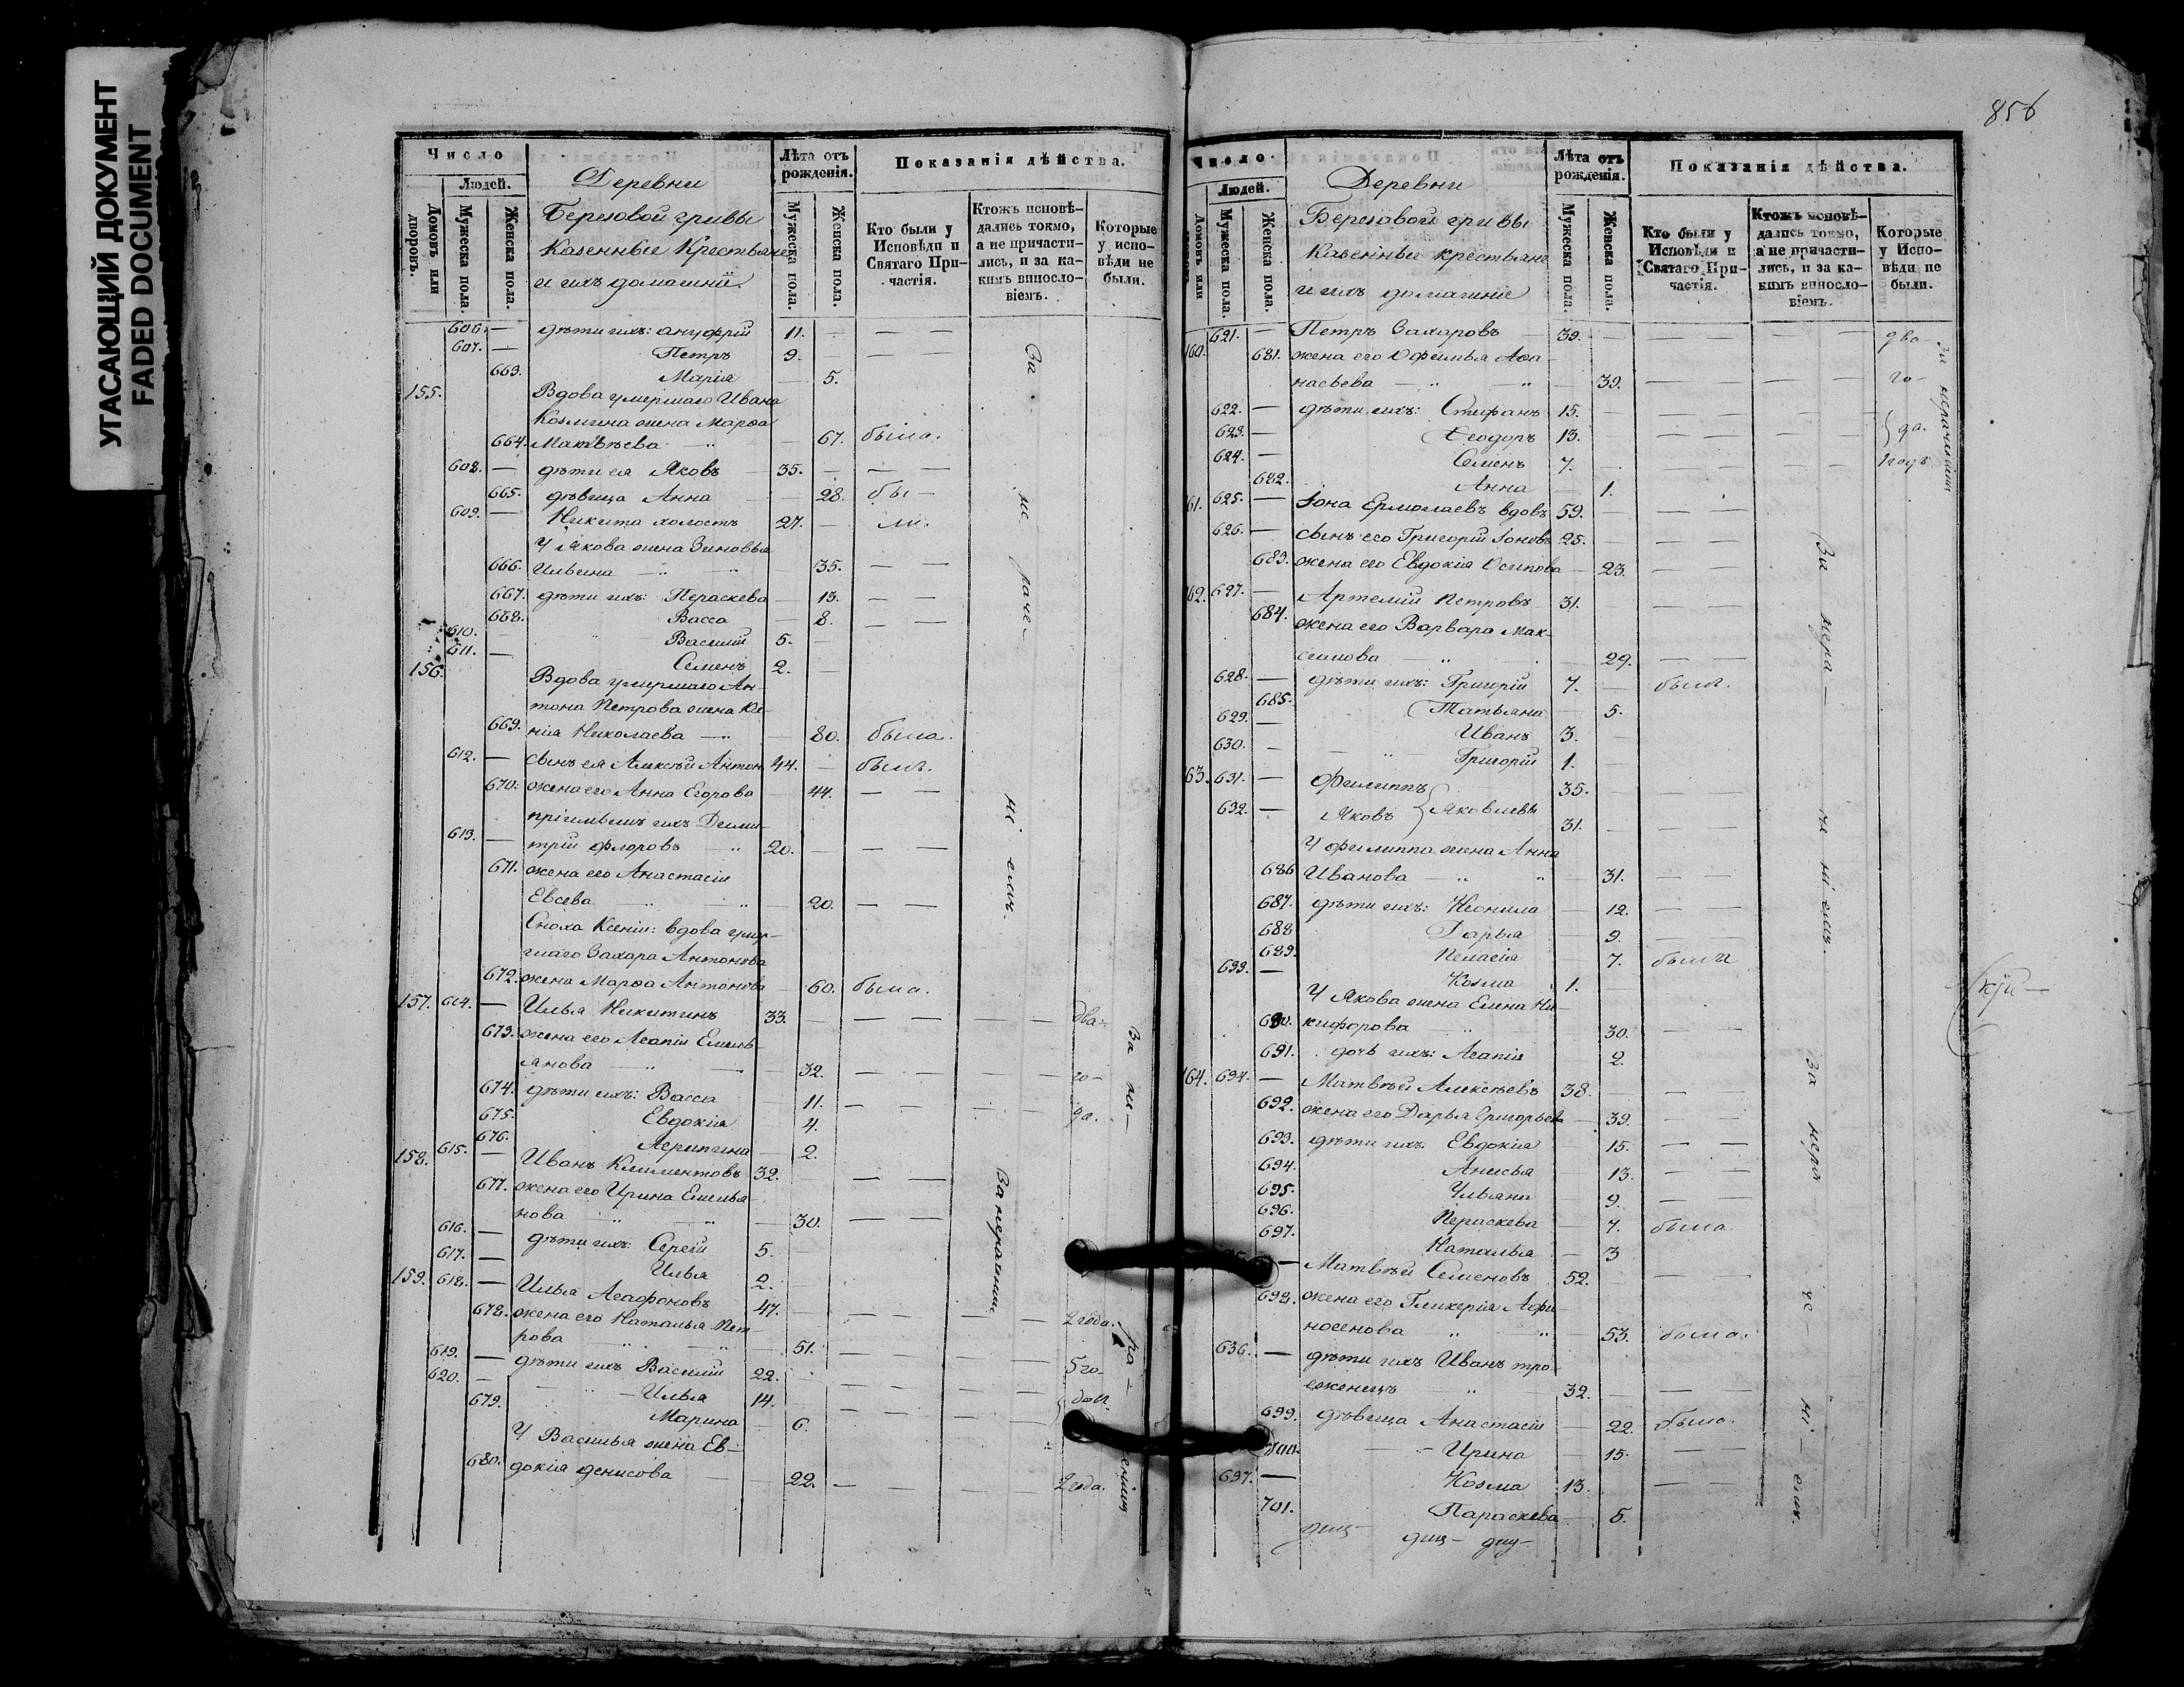 УГАСАЮЩИЙ ДОКУМЕНТ
FADED DOCUMENT
Число
Людей.
Домовъ или дворовъ.
Мужеска пола.
Женска пола.
Деревни
Березовой гривы
Казенныи Крестьяне
и ихъ домашнiи
Лѣта отъ рожденія.
Мужеска пола.
Женска пола.
Показанія дѣйства.
Кто были у Исповѣди и Святаго Причастія.
Ктожъ исповѣдались токмо, а не причастились, и за какимъ винословіемъ.
Которые у исповѣди не были.
606. — дѣти ихъ: Ануфрiй 11. — —
607. — Петръ 9. — —
663. Марiя — 5.
155. Вдова умершаго Ивана
Козмина жена Марѳа
664. Матвѣева — 67. была.
608. — дѣти ея Яковъ 35. — —
665. дѣвица Анна — 28. бы —
609. — Никита холостъ 27. — ли.
У Якова жена Зиновья
666. Ильина — 35. — —
667. дѣти ихъ: Пераскева — 13. — —
668. Васса — 8. — —
610. — Василiй 5. —
611. — Семенъ 2. —
156. Вдова умершаго Ан-
тона Петрова жена Ксе-
669. нiя Николаева — 80. была.
612. — сынъ ея Алексѣй Антон 44. — былъ.
670. жена его Анна Егорова — 44. — —
прiимышъ ихъ Дими-
613. — трiй Флоровъ 20. — —
671. жена его Анастасiя
Евсева — 20. — —
Сноха Ксенiи: вдова умер-
шаго Захара Антонова
672. жена Марѳа Антонова — 60. была.
157. 614. — Илья Никитинъ 33. — — — — два-
673. жена его Агапiя Емель-
янова — 32. — — — — го-
674. дѣти ихъ: Васса 11. — — — — да.
675. Евдокiя 4.
676. Агрипина — 2.
158. 615. — Иванъ Климентовъ 32. — —
677. жена его Ирина Емелья-
нова — 30. — —
616. — дѣти ихъ: Сергiй 5.
617. — Илья 2.
159. 618. — Илья Агафоновъ 47. — — — — 2 года.
678. жена его Наталья Пет-
рова — 51. — — — —
619. — дѣти ихъ Василiй 22. — — — — 5 го-
620. — Илья 14. — — — —
679. Марина — 6.
У Василья жена Ев-
680. докiя Денисова — 22. — — — — 2 года.
За не раче- нi- емъ.
За нераченiи
За не- ра- ченiи
856
Число
Людей.
Домовъ или
Мужеска пола.
Женска пола.
Деревни
Березовой гривы
Казенныи крестьяне
и ихъ домашнiе
Лѣта отъ рожденія.
Мужеска пола.
Женска пола.
Показанія дѣйства.
Кто были у Исповѣди и Святаго Причастія.
Ктожъ исповѣдались токмо, а не причастились, и за какимъ винословіемъ.
Которые у Исповѣди не были.
160. 621. — Петръ Захаровъ 39. — — — — два
681. жена его Офимья Аѳа-
насьева — 39. — — — — го-
622. — дѣти ихъ: Стефанъ 15. — — — —
623. — Ѳеодоръ 13. — — — — да.
624. — Семенъ 7. — — — — 1 годъ
682. Анна 1.
161. 625. — Iона Ермолаевъ вдовъ 59. — —
626. — сынъ его Григорiй Iоновъ 25. — —
683. жена его Евдокiя Осипова — 23. — —
162. 627. — Артемiй Петровъ 31. — —
684. жена его Варвара Мак-
симова — 29. — —
628. — дѣти ихъ: Григорiй 7. — былъ.
685. Татьяна — 5.
629. — Иванъ 3.
630. — Григорiй 1.
163. 631. — Филиппъ 35. — —
632. — Яковъ } Яковлевы 31. — —
У Филиппа жена Анна
686 Иванова — 31. — —
687. дѣти ихъ: Неонила — 12. — —
688 Дарья — 9. — —
689. Пелагiя — 7. была
633. — Козма 1.
У Якова жена Елена Ни-
690. кифорова — 30. — —
691. дочь ихъ: Агапiя — 2.
164. 634. — Матвѣй Алексѣевъ 38. — —
692. жена его Дарья Григорьева — 39. — —
693. дѣти ихъ: Евдокiя — 15. — —
694. Анисья — 13. — —
695. Ульяна — 9. — —
696. Пераскева — 7. была.
697. Наталья — 3
— Матвѣй Семеновъ 52. — —
698. жена его Гликерiя Афи-
ногенова — 53. была.
636. — дѣти ихъ Иванъ тро-
еженецъ 32. — —
699. дѣвица Анастасiя — 22. была.
700. Ирина — 15. — —
637. — Козма 13. — —
701. Параскева — 5.
За нера- че- нi- емъ.
За нера- че- нi- емъ.